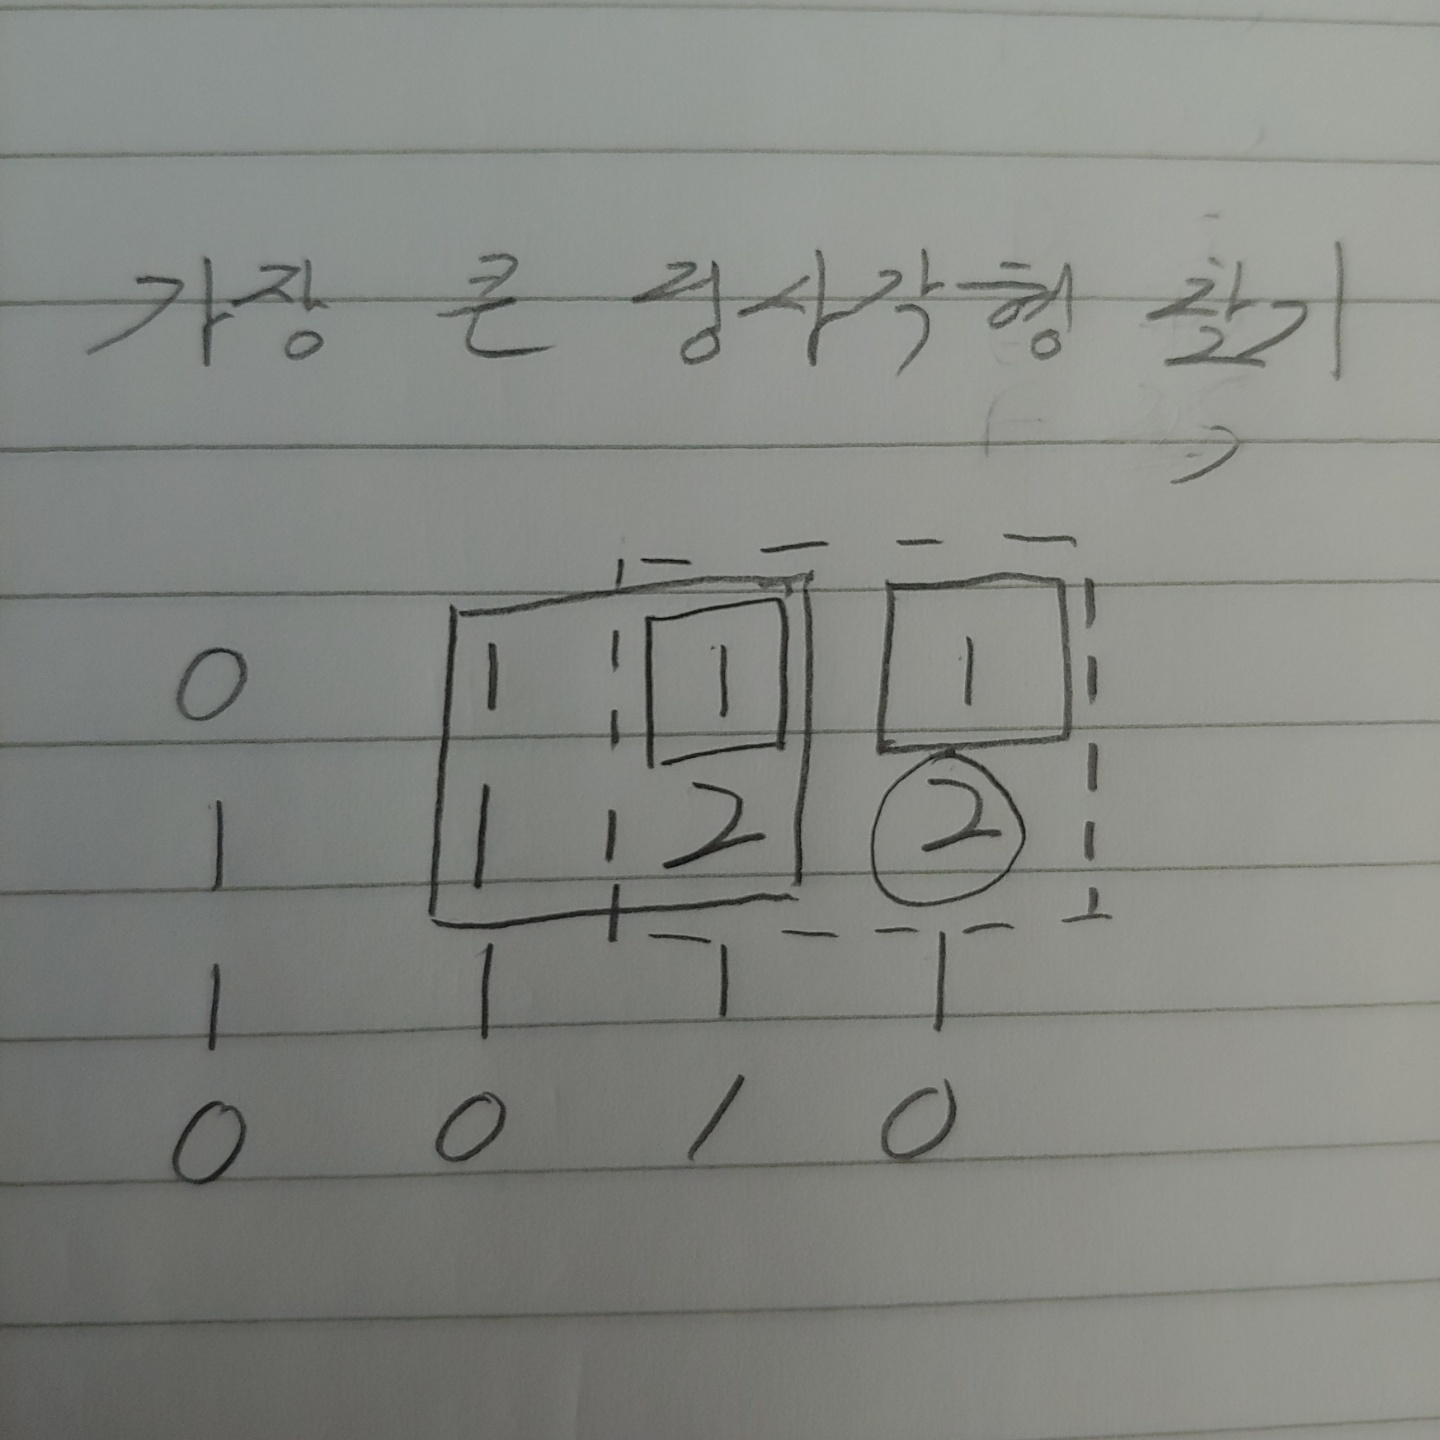 가장 큰 정사각형 찾기
0 1 1 1
1 1 2 2
1 1 1 1
0 0 1 0